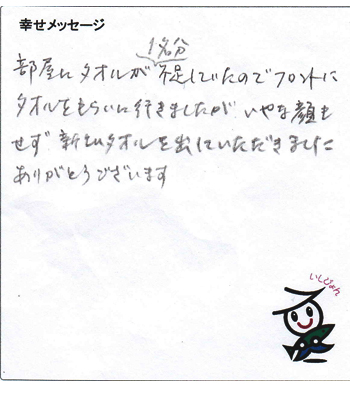 幸せメッセージ
1名分
部屋にタオルが不足していたのでフロントに
タオルをもらいに行きましたが いやな顔も
せず 新しいタオルを出していただきました
ありがとうございます